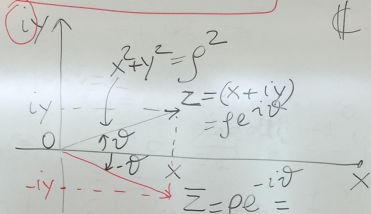 iy
ℂ
x²+y²=ρ²
iy
z=(x+iy)
=ρe^{iϑ}
0
ϑ
-ϑ
x
x
-iy
z̅=ρe^{-iϑ}=